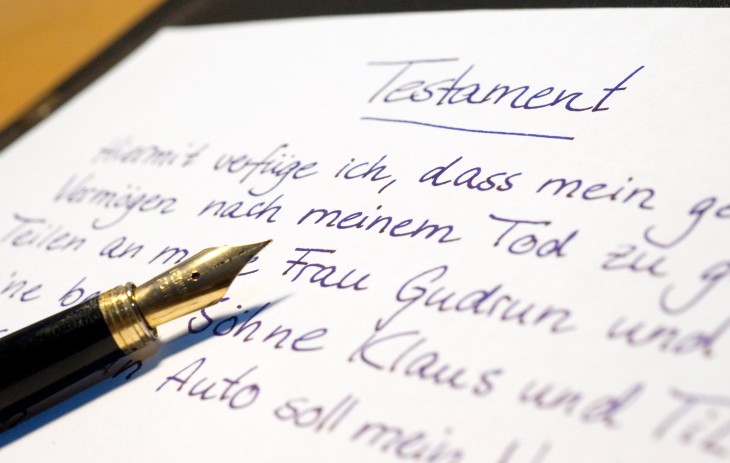 Testament
Hiermit verfüge ich, dass mein ge
Vermögen nach meinem Tod zu g
Teilen an Frau Gudrun und
Söhne Klaus und
Auto soll mein